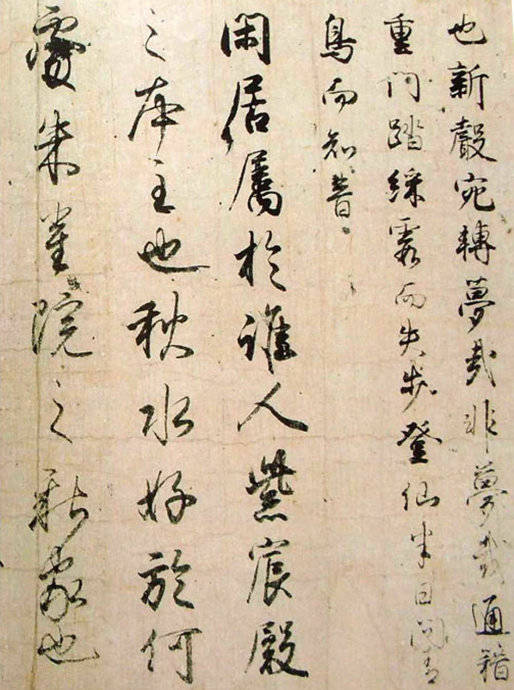 也新聲宛轉夢哉非夢哉通籍
重門踏綵霞而失步登仙半日問青
鳥而知音
閑居属於誰人紫宸殿
之本主也秋水好於何
處朱雀院之新家也